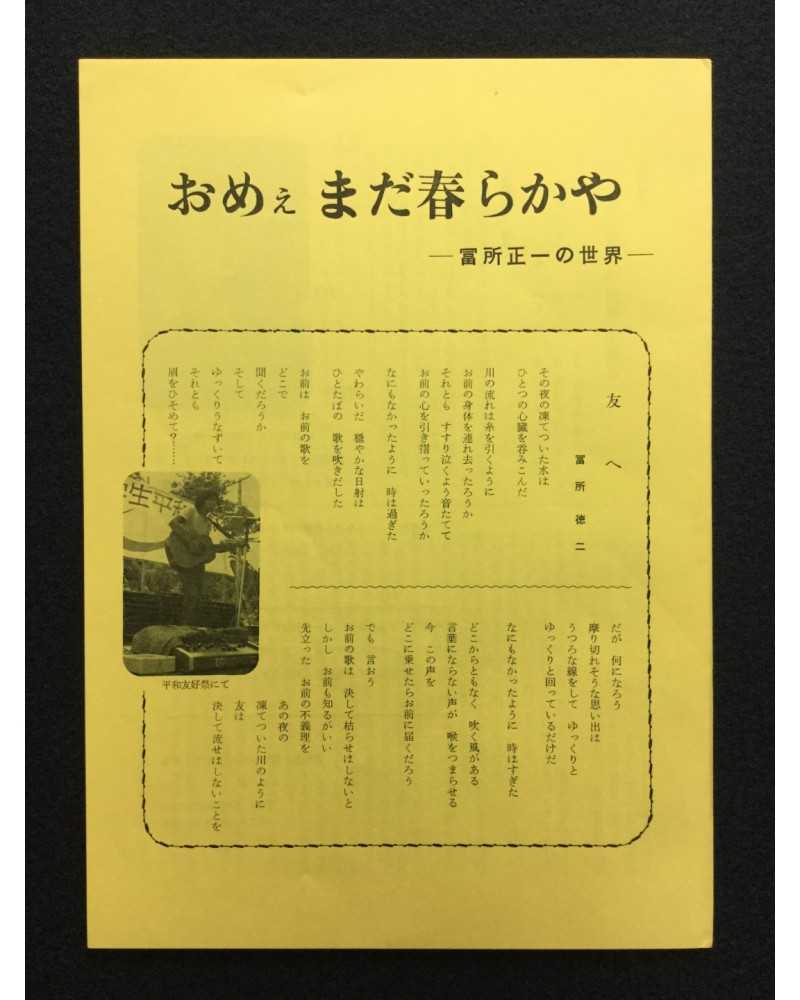 おめぇ まだ春らかや
―冨所正一の世界―
友へ
冨所徳二
その夜の凍てついた水は
ひとつの心臓を呑みこんだ
川の流れは糸を引くように
お前の身体を連れ去ったろうか
それとも すすり泣くよう音たてて
お前の心を引き摺っていったろうか
なにもなかったように 時は過ぎた
やわらいだ 穏やかな日射は
ひとたばの 歌を吹きだした
お前は お前の歌を
どこで
聞くだろうか
そして
ゆっくりうなずいて
それとも
眉をひそめて?……
だが 何になろう
摩り切れそうな思い出は
うつろな線をして ゆっくりと
ゆっくりと回っているだけだ
なにもなかったように 時はすぎた
どこからともなく 吹く風がある
言葉にならない声が 喉をつまらせる
今 この声を
どこに乗せたらお前に届くだろう
でも 言おう
お前の歌は 決して枯らせはしないと
しかし お前も知るがいい
先立った お前の不義理を
あの夜の
凍てついた川のように
友は
決して流せはしないことを
生平和
平和友好祭にて